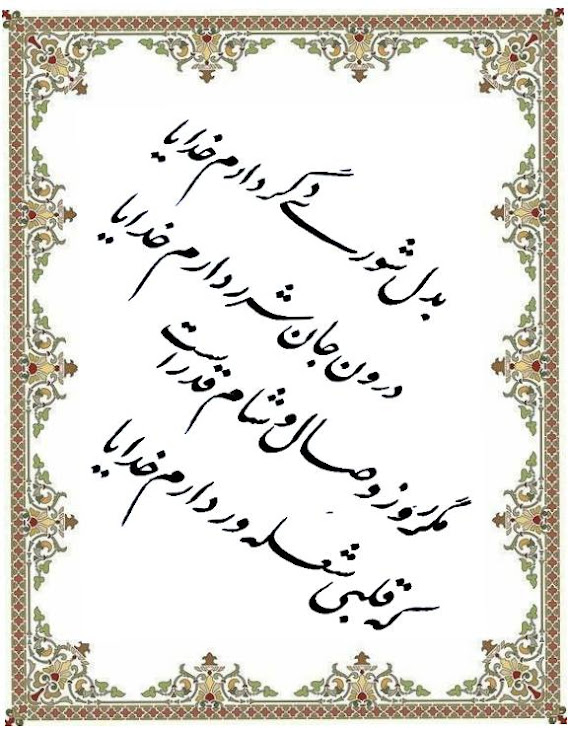 بدل شوری دگر دارم خدایا
درون جان شرر دارم خدایا
مگر روز وصال و شام قدر است
که قلبی شعله ور دارم خدایا